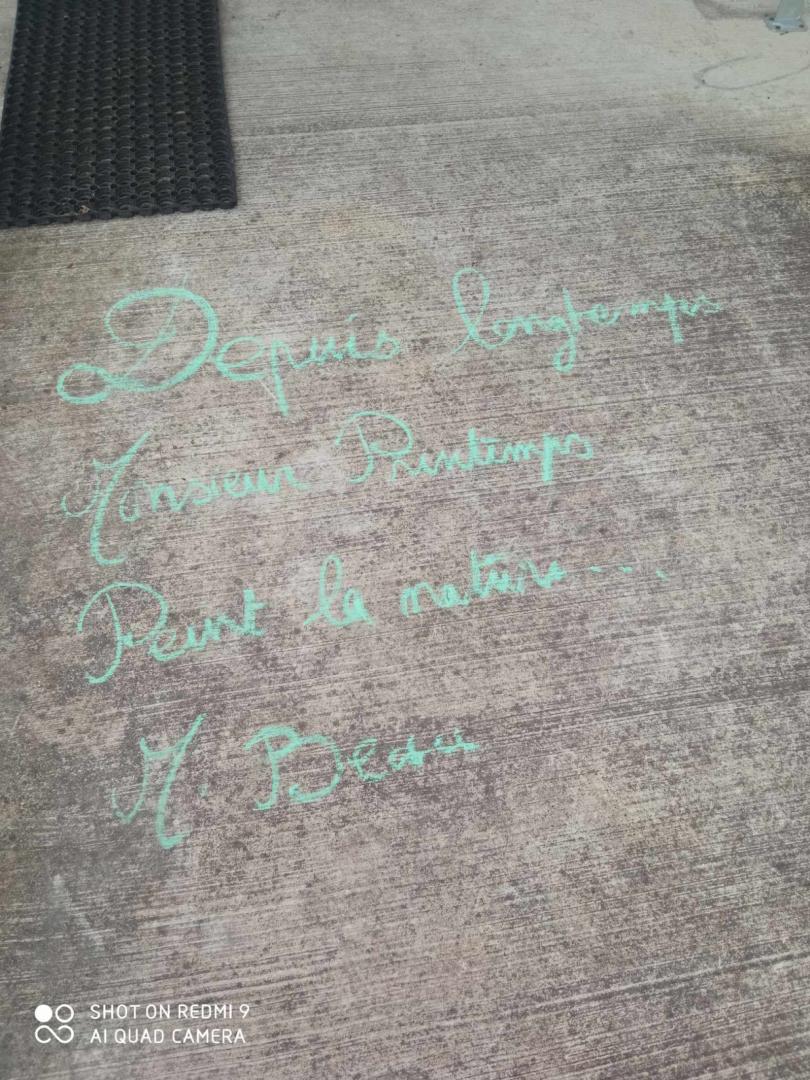 Depuis longtemps
Monsieur Printemps
Peint la nature...
M. Beau
SHOT ON REDMI 9
AI QUAD CAMERA